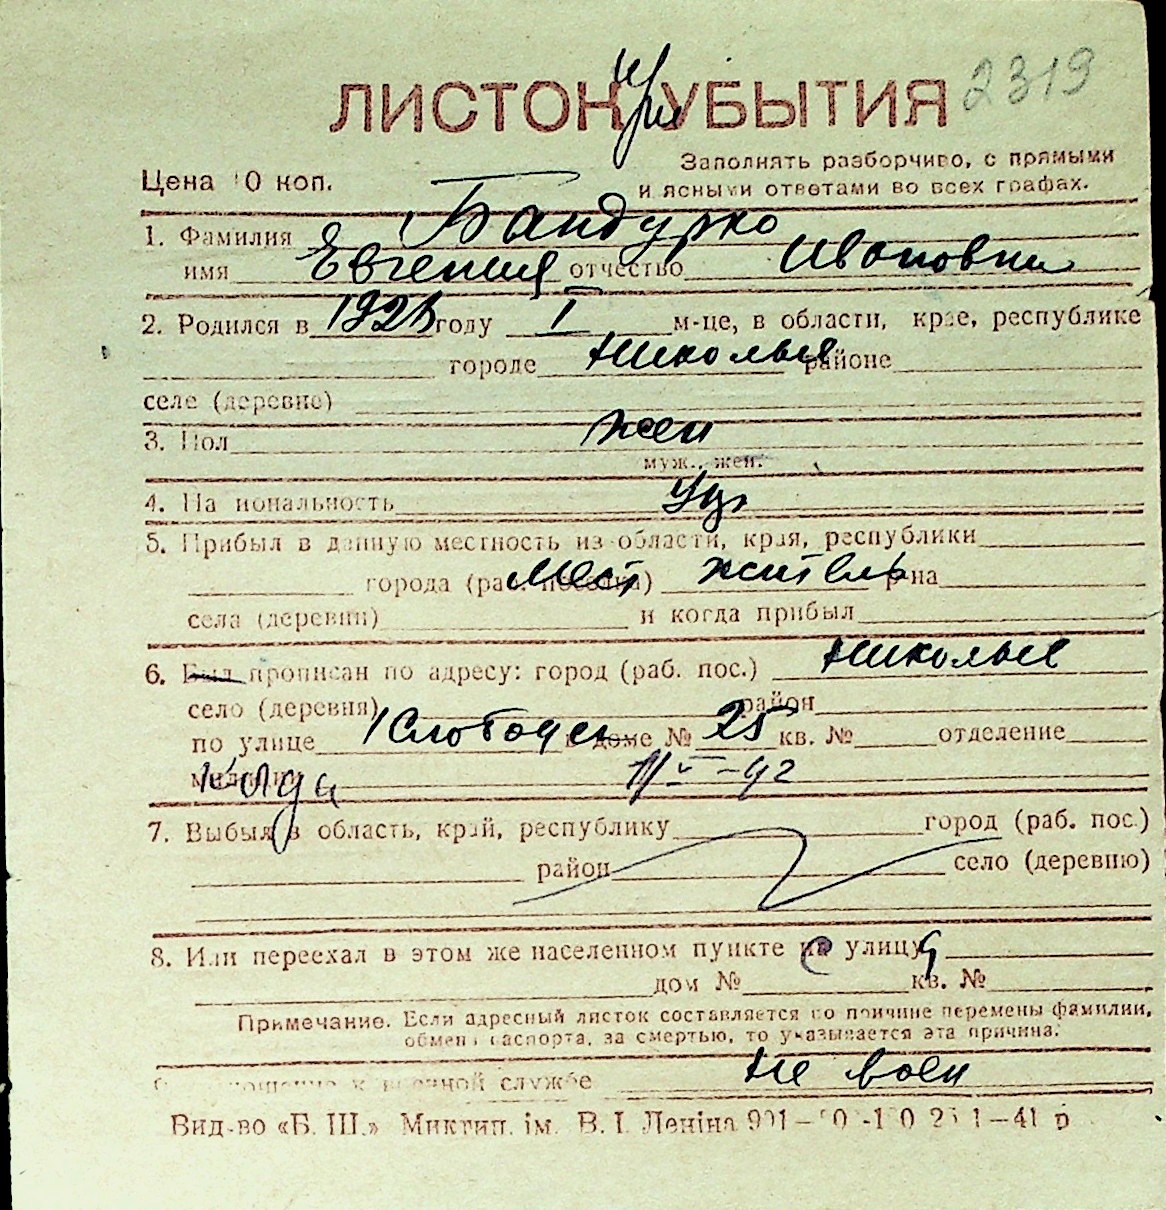 ЛИСТОК УБЫТИЯ 2319
При
Заполнять разборчиво, с прямыми
Цена 0 коп. и ясными ответами во всех графах.
1. Фамилия Бандурко
имя Евгения отчество Ивановна
2. Родился в году I м-це, в области, крае, республике
городе Николаев районе
селе (деревне)
3. Пол жен
муж., жен.
4. На иональность Укр
5. Прибыл в данную местность из области, края, республики
города (раб. поселка) Мест житель р-на
села (деревни) и когда прибыл
6. Был прописан по адресу: город (раб. пос.) Николаев
село (деревня) район
по улице 1 Слободск в доме № 25 кв. № отделение
милиции 11/V-42
7. Выбыл в область, край, республику город (раб. пос.)
район село (деревню)
8. Или переехал в этом же населенном пункте на улицу
дом № кв. №
Примечание. Если адресный листок составляется по причине перемены фамилии,
обмена паспорта, за смертью, то указывается эта причина.
к военной службе не воен
Вид-во «Б. Ш.» Миктип. ім. В. І. Леніна